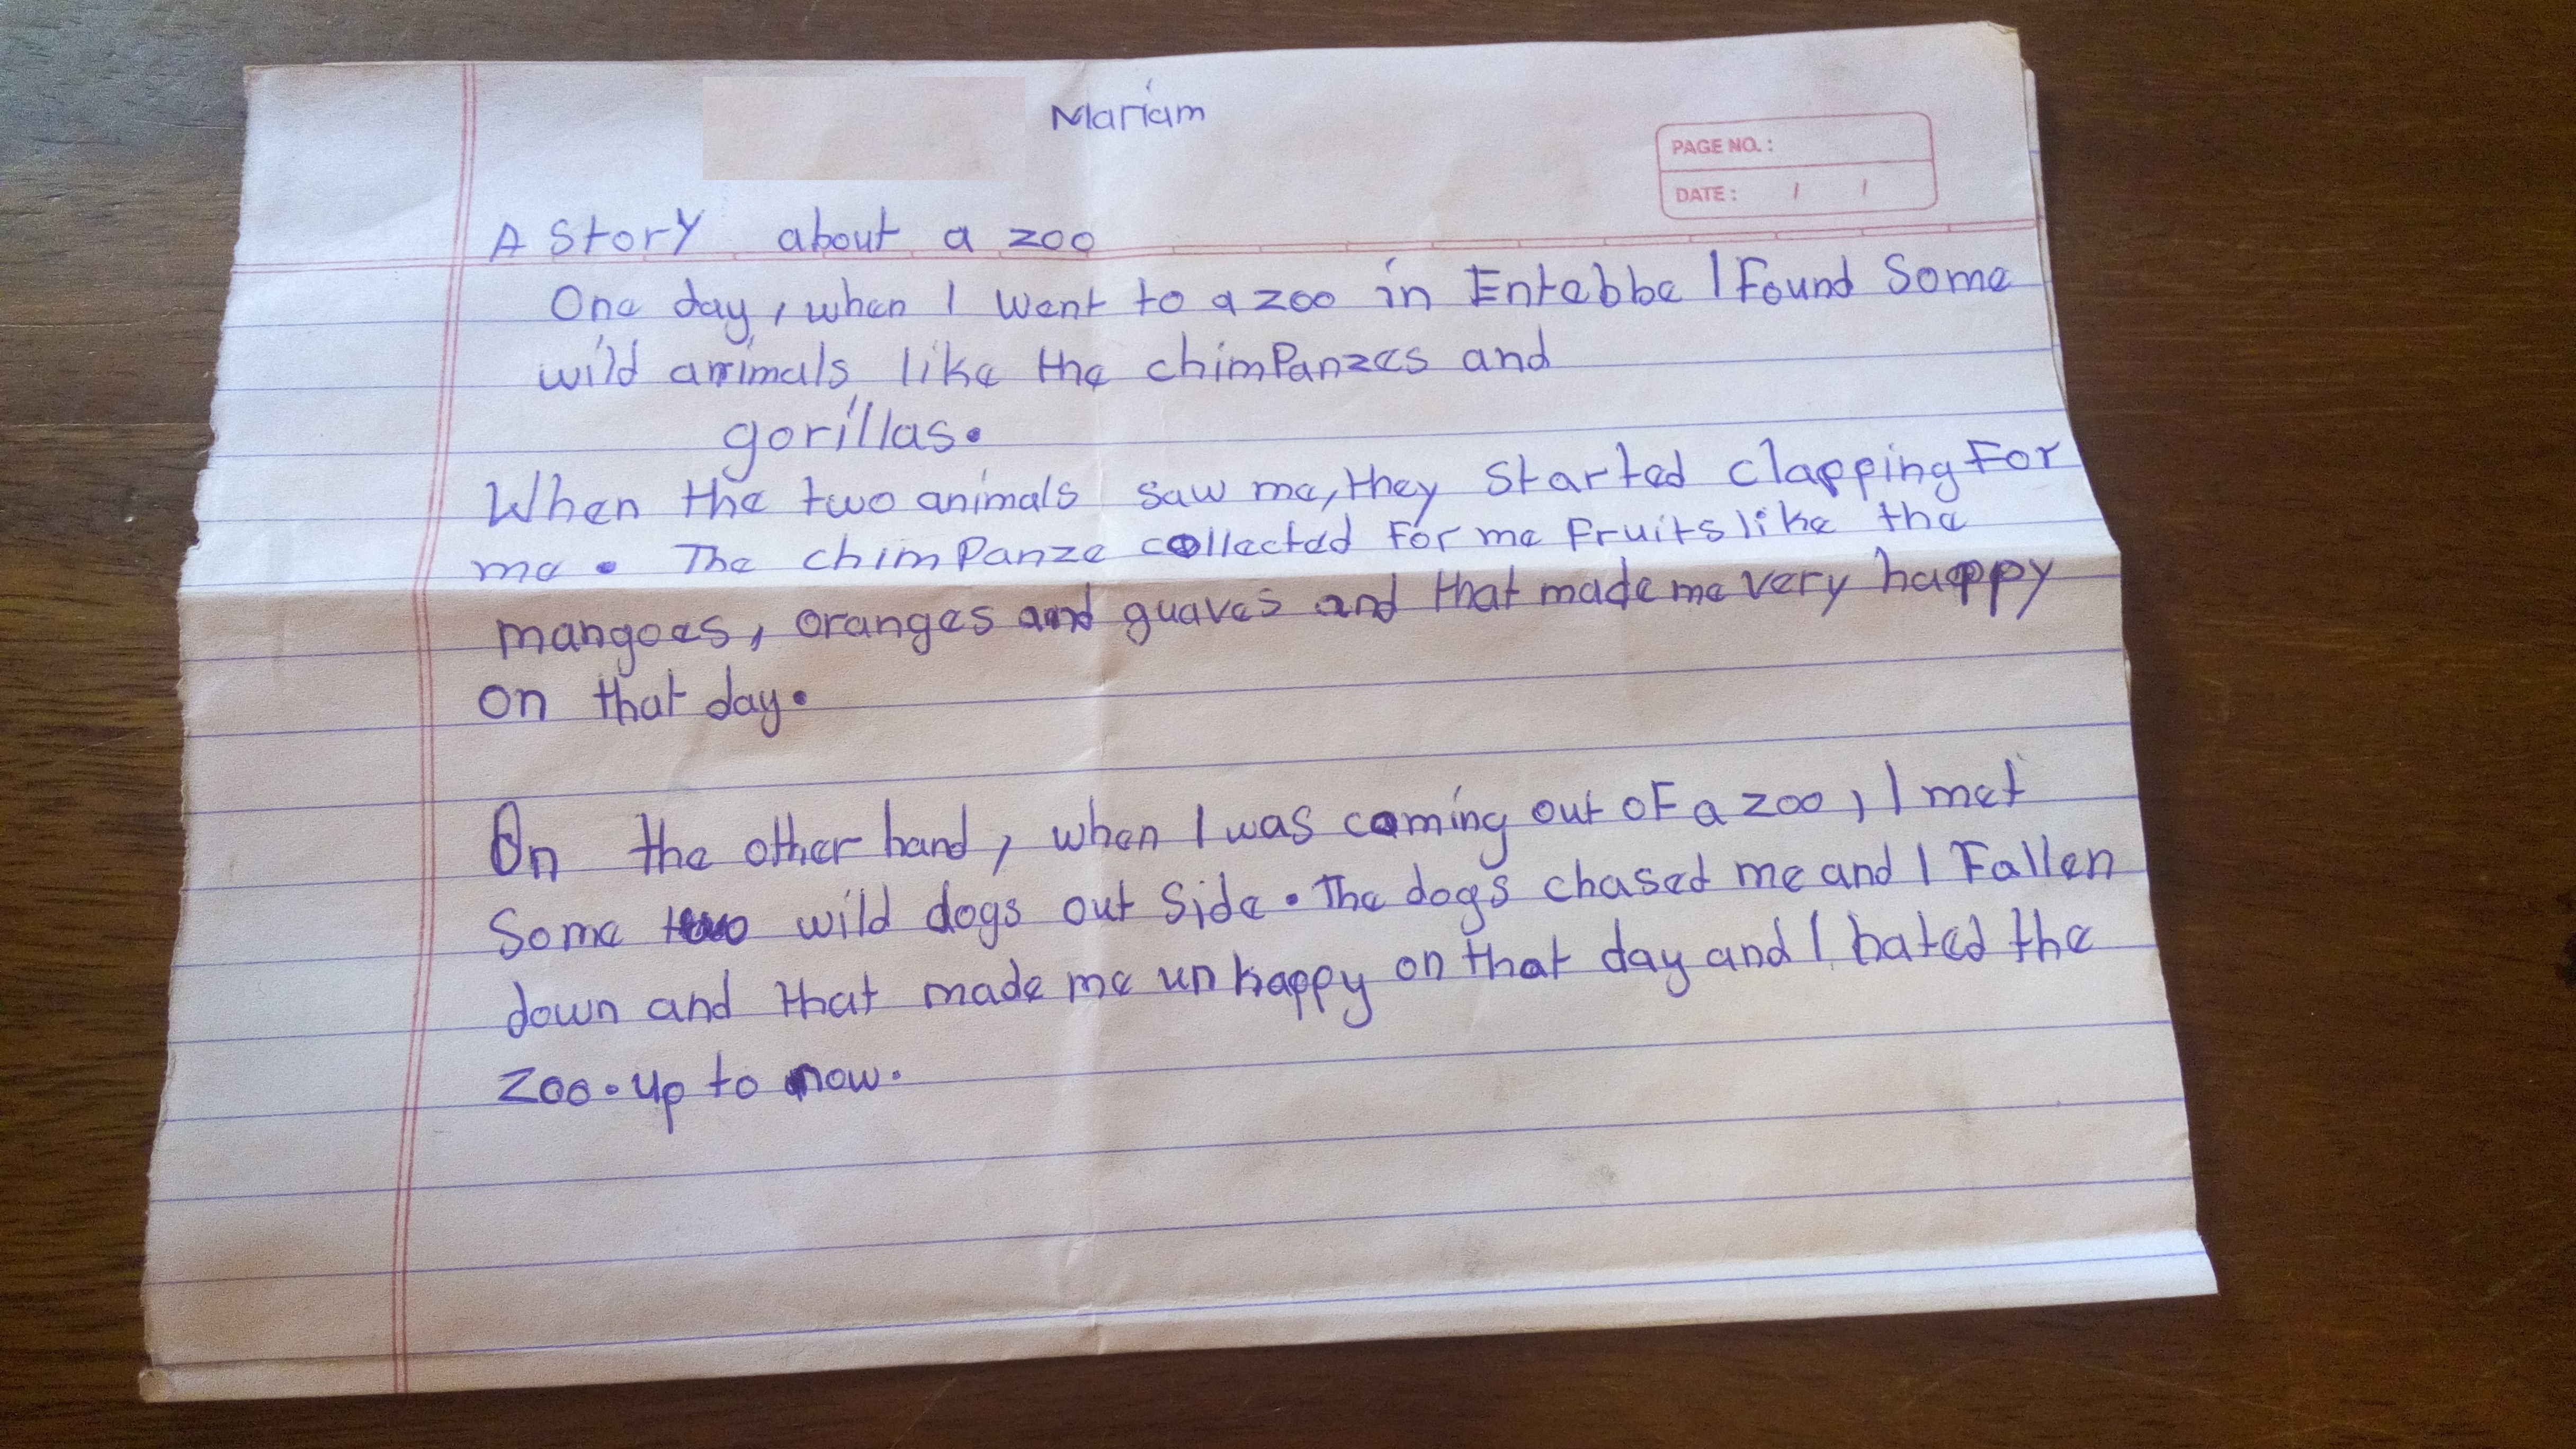 Mariam
PAGE NO. :
DATE : / /
A story about a zoo
One day, when I went to a zoo in Entebbe I Found Some
wild animals like the chimPanzes and
gorillas.
When the two animals saw me, they started clapping For
me. The chimPanze collected For me Fruits like the
mangoes, oranges and guaves and that made me very happy
on that day.
On the other hand, when I was coming out oF a zoo, I met
Some two wild dogs out Side. The dogs chased me and I Fallen
down and that made me un happy on that day and I hated the
Zoo. up to now.